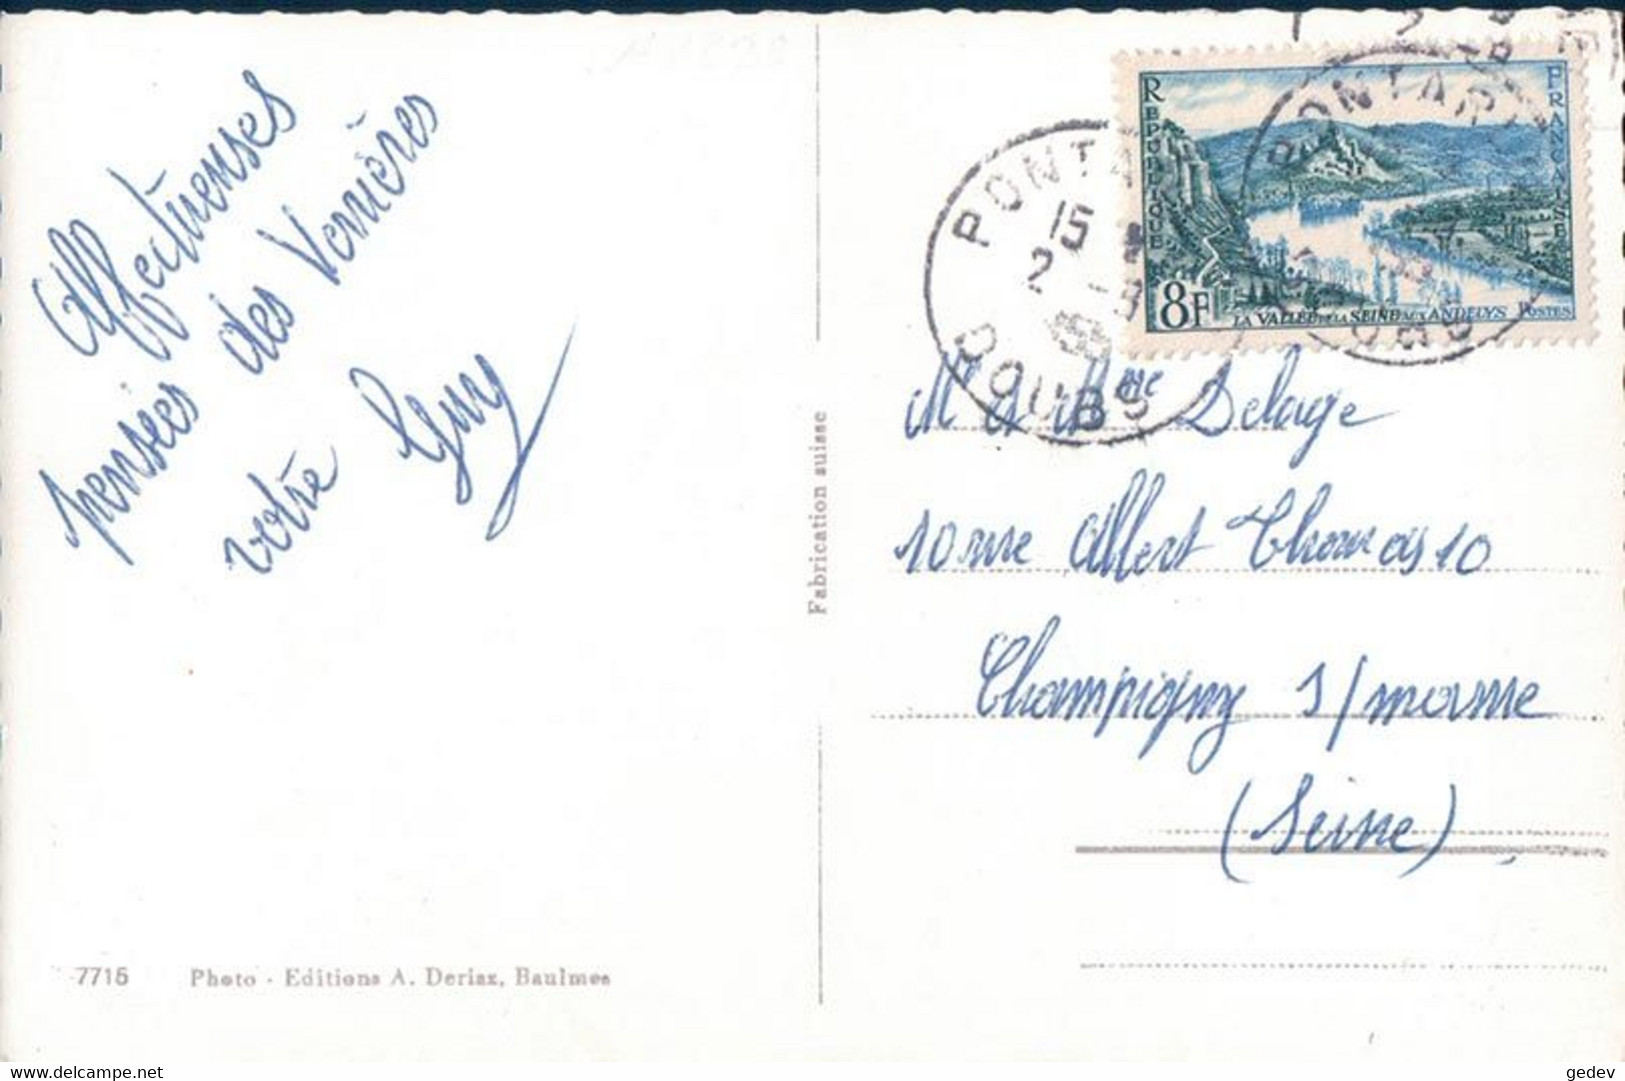 Affectueuses
pensées des Verrières
votre Guy
7715 Photo - Editions A. Deriaz, Baulmes
Fabrication suisse
REPUBLIQUE FRANÇAISE
8F LA VALLÉE DE LA SEINE AUX ANDELYS POSTES
PONTAR
15
2 - 8
DOUBS
M et Mme Delage
10 rue Albert Thomas 10
Champigny s/marne
(Seine)
gedev